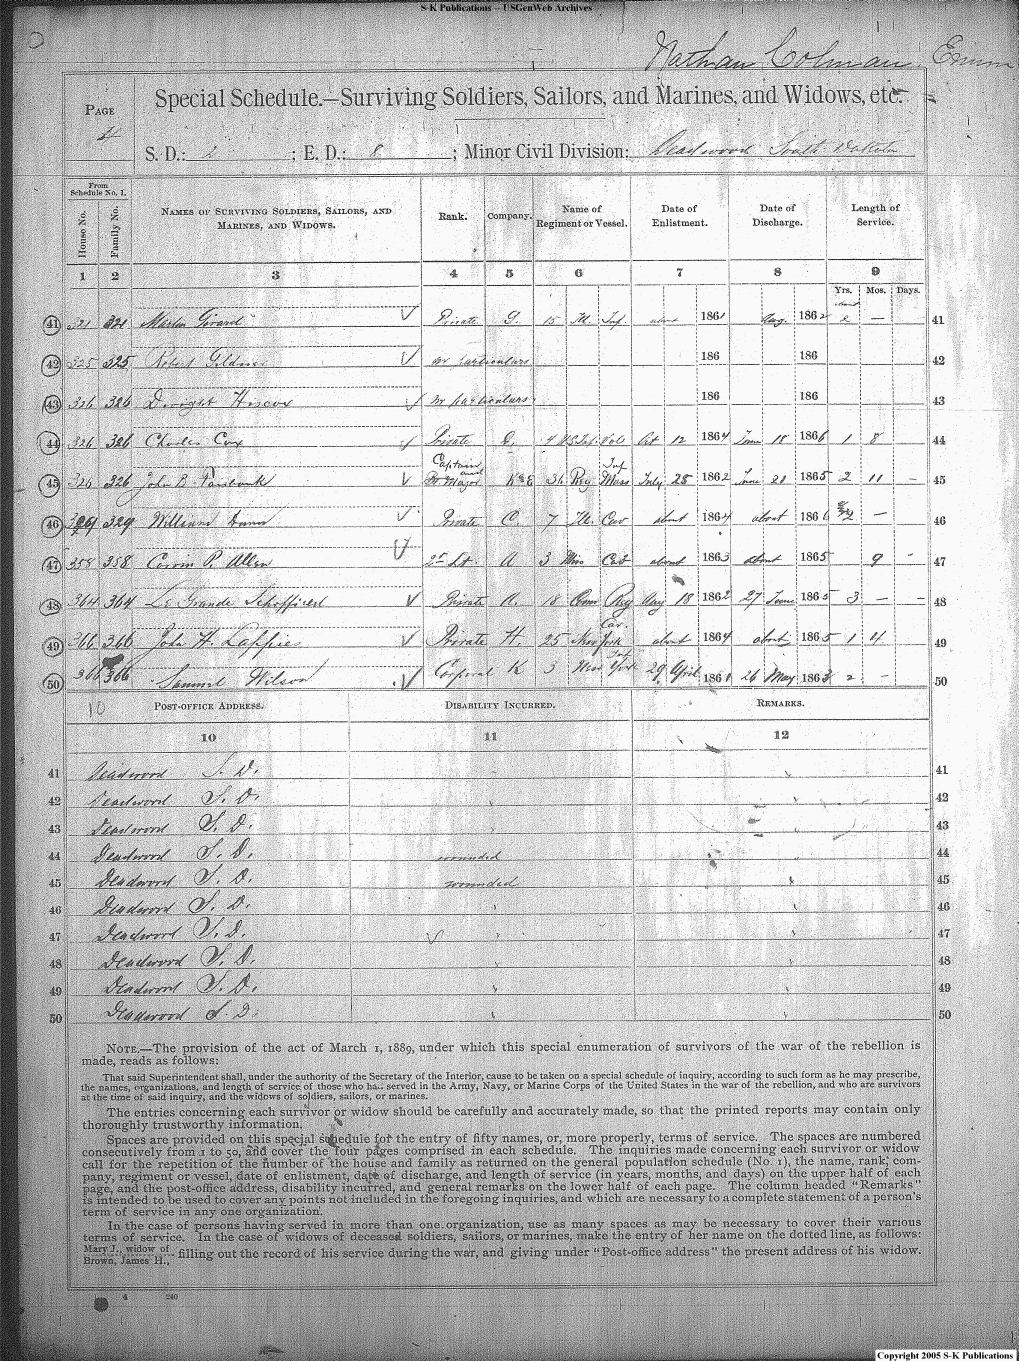 S-K Publications – USGenWeb Archives
Nathan Colman
PAGE
4
Special Schedule.—Surviving Soldiers, Sailors, and Marines, and Widows, etc.
S. D.: 2 ; E. D.: 8 ; Minor Civil Division: Deadwood South Dakota
From Schedule No. 1.
House No. Family No. NAMES OF SURVIVING SOLDIERS, SAILORS, AND MARINES, AND WIDOWS. Rank. Company. Name of Regiment or Vessel. Date of Enlistment. Date of Discharge. Length of Service.
1 2 3 4 5 6 7 8 9
Yrs. Mos. Days.
about
41 321 321 Martin Girard Private G. 15 Ill. Inf. about 1861 Aug. 1862 2 — 41
42 325 325 Robert no particulars 186 186 42
43 326 326 Dwight Hiscox no particulars 186 186 43
44 326 326 Charles Cox Private 4 U.S. Inf. Vols Oct 12 1864 June 18 1866 1 8 44
Captain and Inf
45 326 326 John B. Fairbank Major K & E 36 Reg Mass July 28 1862 June 21 1865 2 11 - 45
46 329 William Private C. 7 Ill. Cav about 1864 about 1866 2 — 46
47 358 358 P. Allen 2" Lt. A 3 Cav about 1863 about 1865 9 - 47
48 364 364 Le Grande Private A. 18 Conn Reg Aug 18 1862 27 June 1865 3 — - 48
Cav.
49 366 366 John H. Lappies Private H. 25 New York about 1864 about 1865 1 4 49
Inf
50 366 366 Samuel Wilson Corporal K 3 New York 29 April 1861 26 May 1863 2 - 50
10
POST-OFFICE ADDRESS. DISABILITY INCURRED. REMARKS.
10 11 12
41 Deadwood S. D. 41
42 Deadwood S. D. 42
43 Deadwood S. D. 43
44 Deadwood S. D. wounded 44
45 Deadwood S. D. wounded 45
46 Deadwood S. D. 46
47 Deadwood S. D. 47
48 Deadwood S. D. 48
49 Deadwood S. D. 49
50 Deadwood S. D. 50
NOTE.—The provision of the act of March 1, 1889, under which this special enumeration of survivors of the war of the rebellion is
made, reads as follows:
That said Superintendent shall, under the authority of the Secretary of the Interior, cause to be taken on a special schedule of inquiry, according to such form as he may prescribe,
the names, organizations, and length of service of those who had served in the Army, Navy, or Marine Corps of the United States in the war of the rebellion, and who are survivors
at the time of said inquiry, and the widows of soldiers, sailors, or marines.
The entries concerning each survivor or widow should be carefully and accurately made, so that the printed reports may contain only
thoroughly trustworthy information.
Spaces are provided on this special schedule for the entry of fifty names, or, more properly, terms of service. The spaces are numbered
consecutively from 1 to 50, and cover the four pages comprised in each schedule. The inquiries made concerning each survivor or widow
call for the repetition of the number of the house and family as returned on the general population schedule (No. 1), the name, rank, com-
pany, regiment or vessel, date of enlistment, date of discharge, and length of service (in years, months, and days) on the upper half of each
page, and the post-office address, disability incurred, and general remarks on the lower half of each page. The column headed "Remarks"
is intended to be used to cover any points not included in the foregoing inquiries, and which are necessary to a complete statement of a person's
term of service in any one organization.
In the case of persons having served in more than one organization, use as many spaces as may be necessary to cover their various
terms of service. In the case of widows of deceased soldiers, sailors, or marines, make the entry of her name on the dotted line, as follows:
Mary J., widow of
Brown, James H., filling out the record of his service during the war, and giving under "Post-office address" the present address of his widow.
4 240
Copyright 2005 S-K Publications